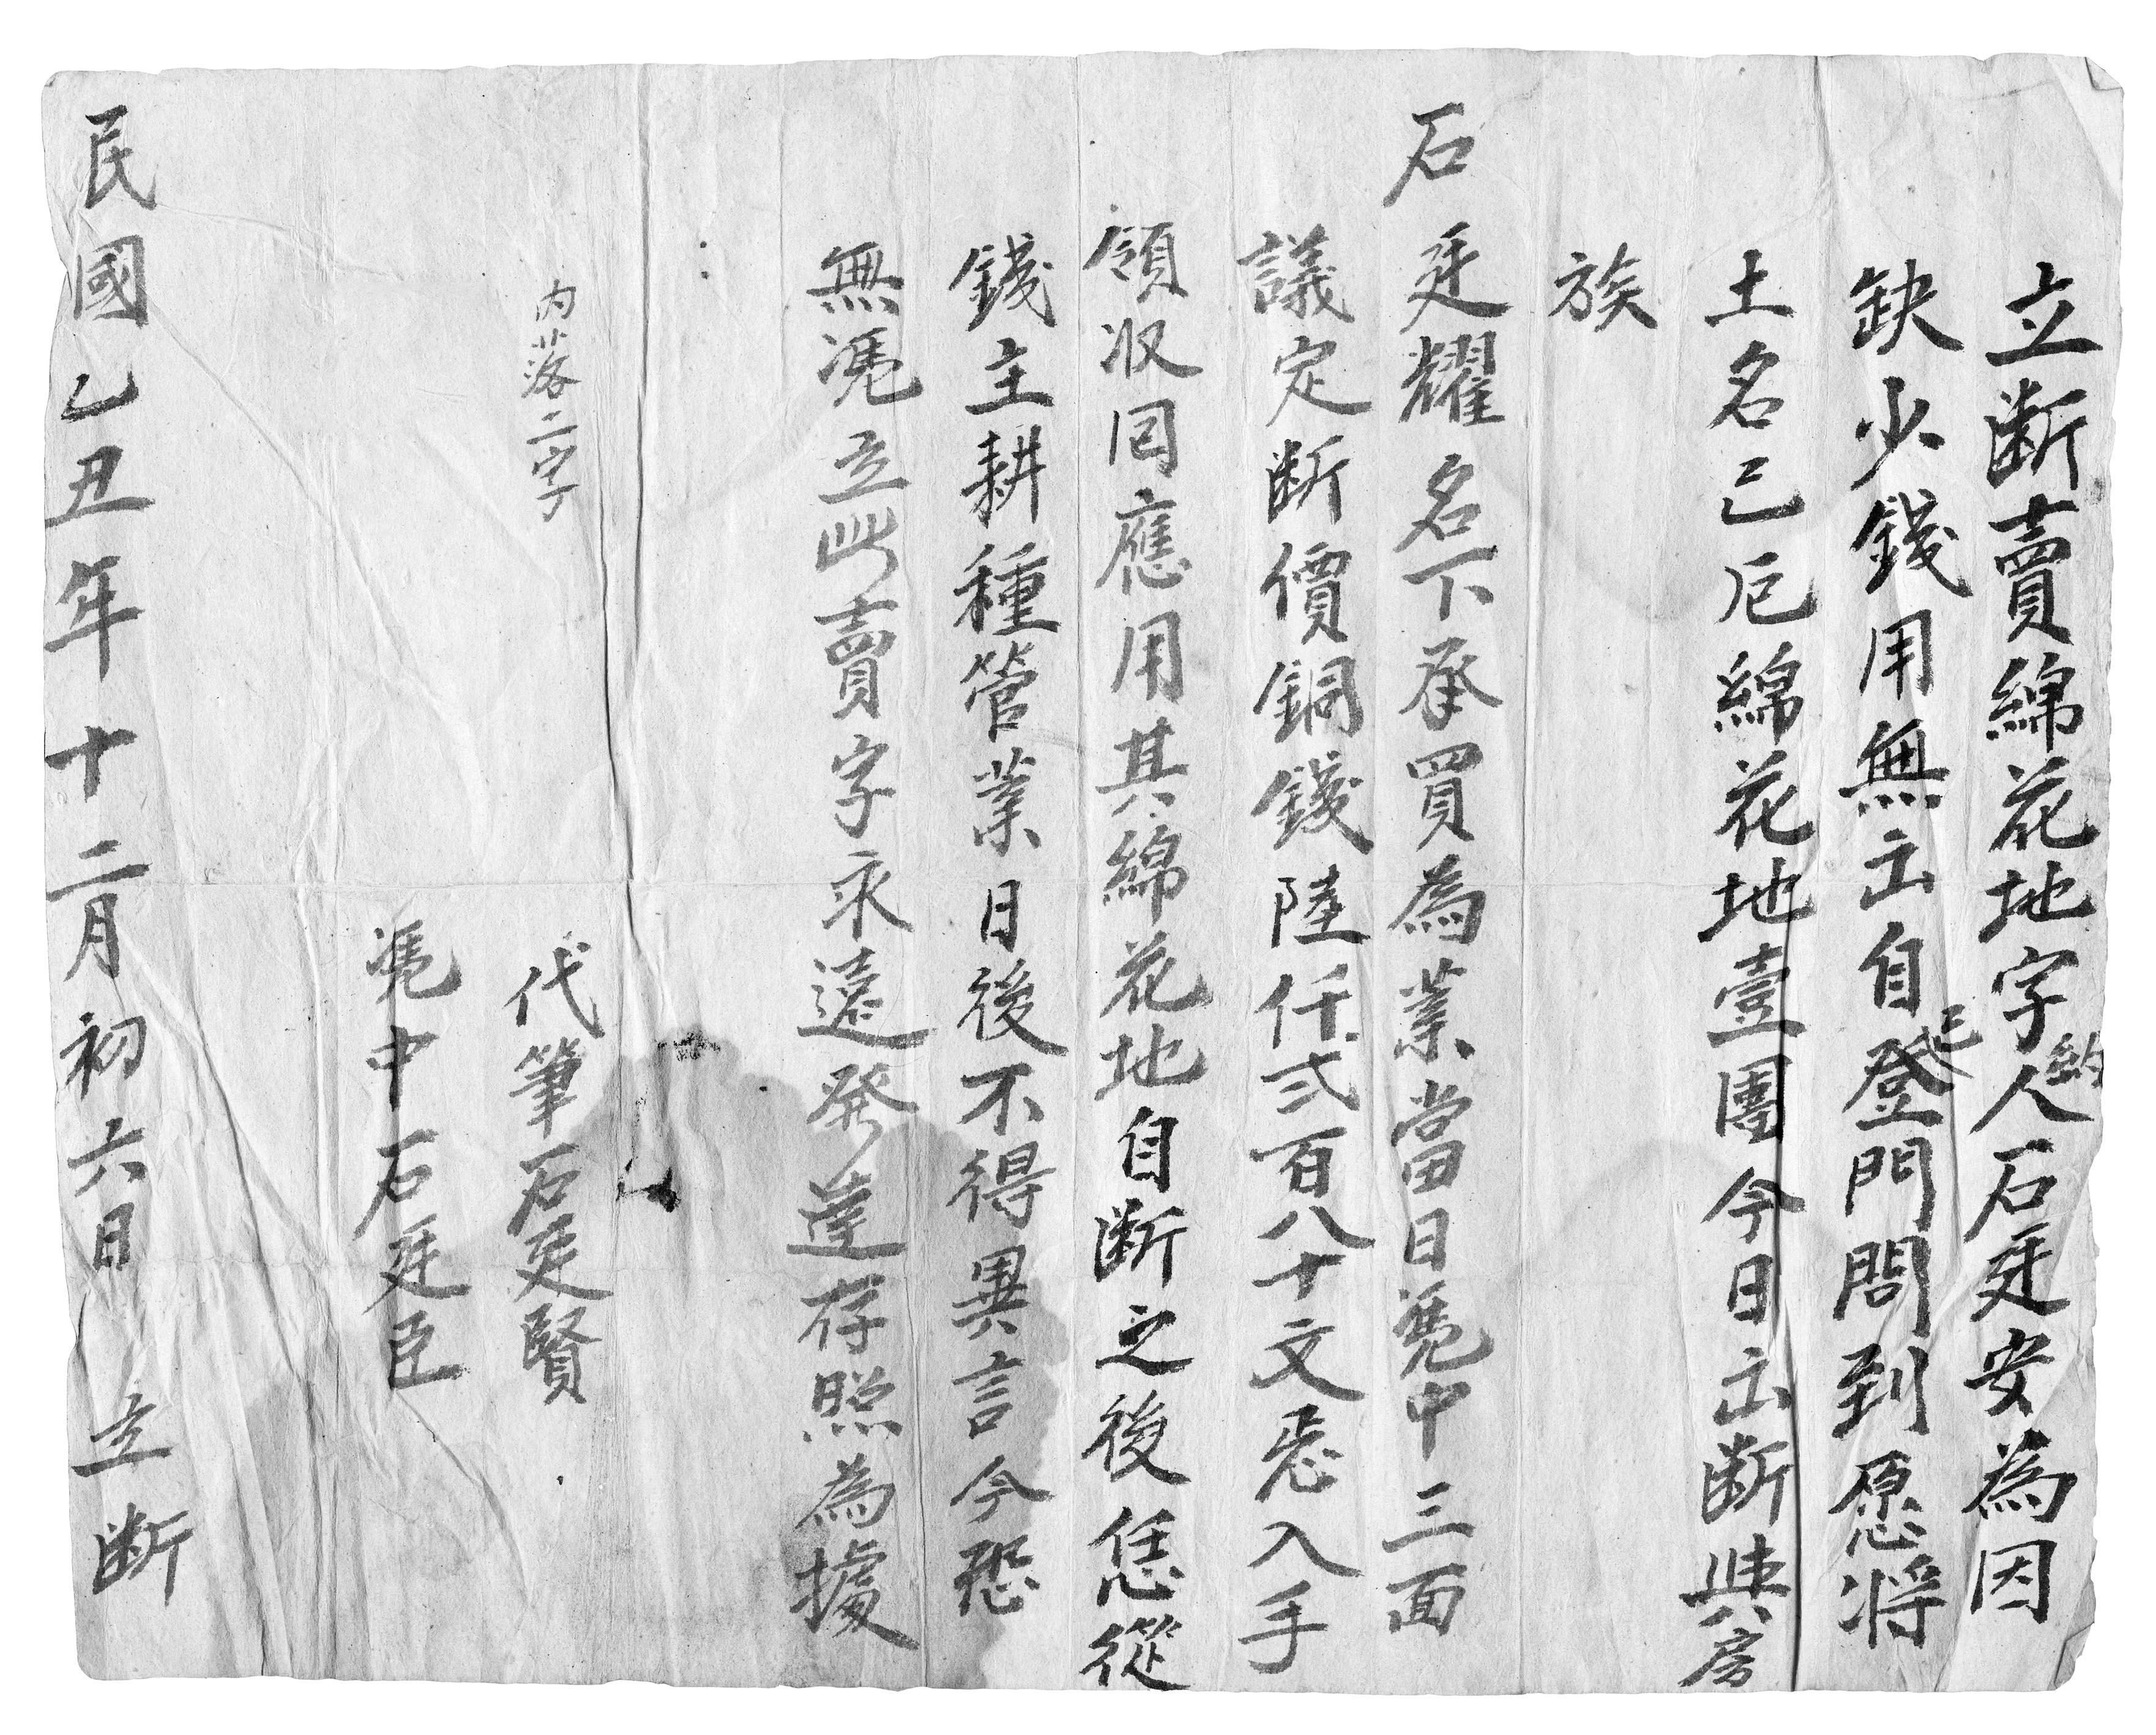 立断賣綿花地字約人石廷安為因
缺少錢用無出自己登門問到愿将
土名己后綿花地壹團今日出断與房
族
石廷耀名下承買為業當日凴中三面
議定断價銅錢陸仟弍百八十文悉入手
領收囘應用其綿花地自断之後恁從
錢主耕種管業日後不得異言今恐
無凴立此賣字永遠發達存照為據
内落二字
代筆石廷賢
凴中石廷臣
民國乙丑年十二月初六日 立断